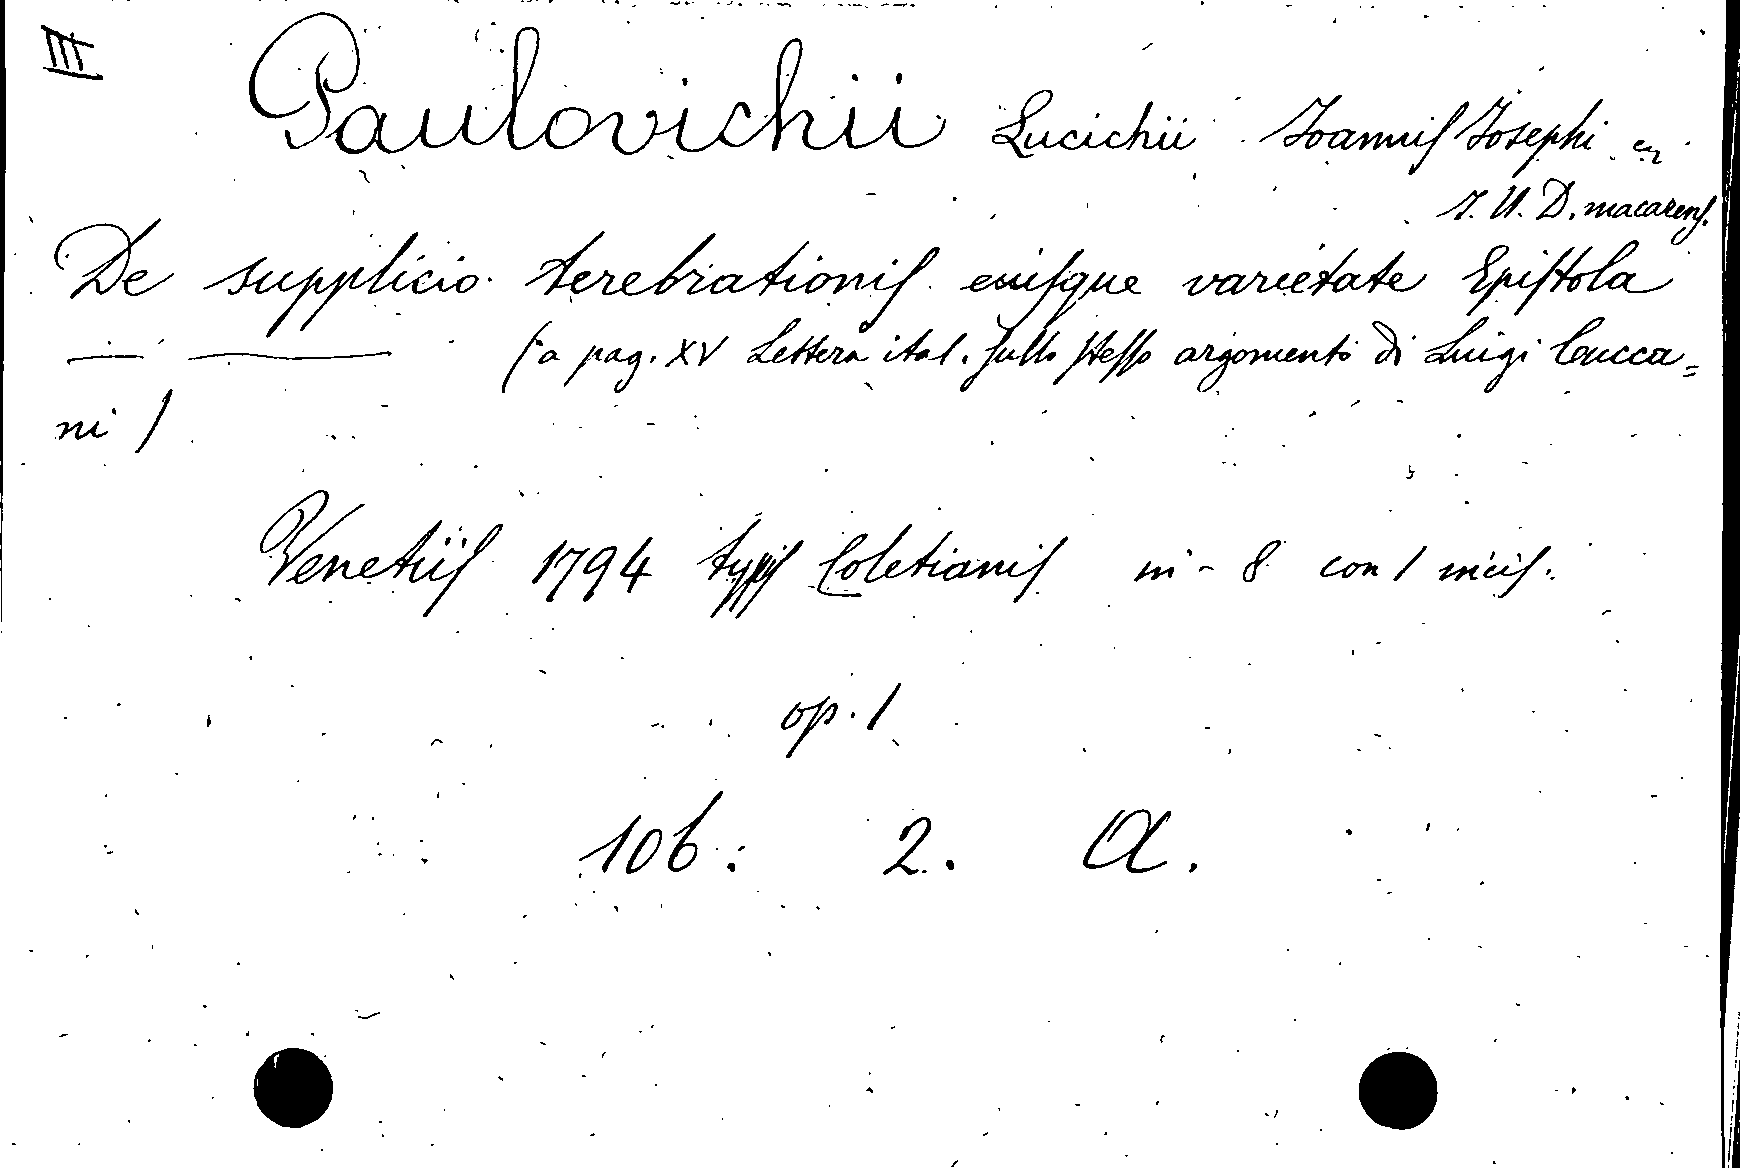 III
Paulovichii Lucichii Joannis Josephi
J. U. D. macarens.
De supplicio terebrationis eiusque varietate Epistola
(a pag. XV Lettera ital. sullo stesso argomento di Luigi Cucca=
ni)
Venetiis 1794 typis Coletianis in-8 con 1 incis.
op. 1
106: 2. A.